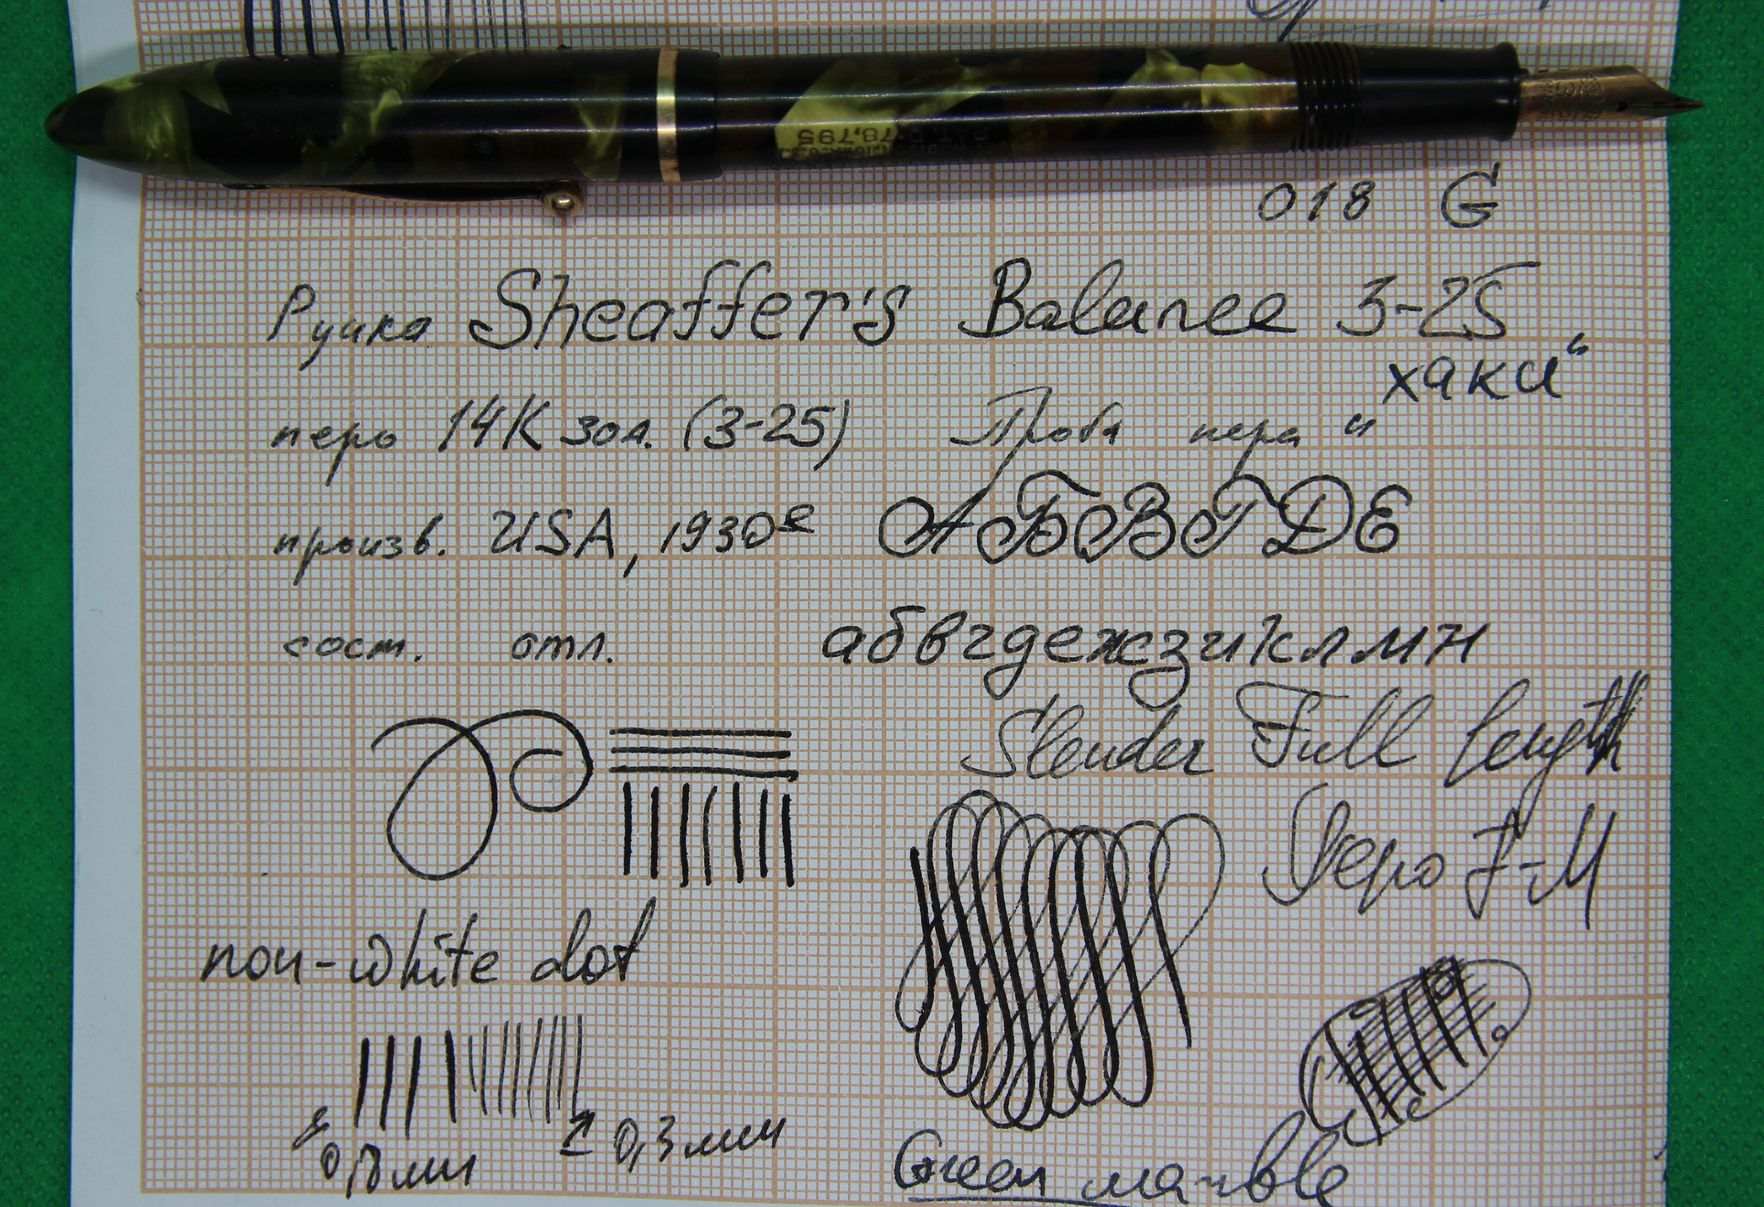 018 G
Ручка Sheaffer's Balance 3-25
хаки"
перо 14К зол. (3-25) Проба пера "
произв. USA, 1930е АБВГДЕ
сост. отл. абвгдежзиклмн
Slender Full length
Перо F-M
non-white dot
0,8мм 0,3мм
Green marble